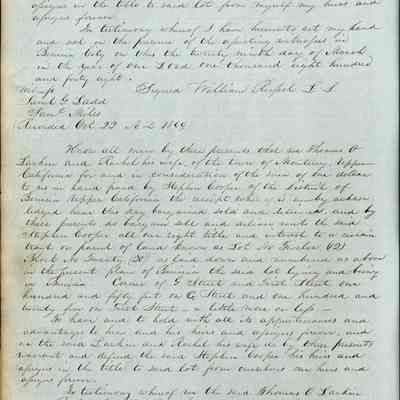 assigns in the title to said lot from myself my heirs and
assigns forever.
In testimony whereof I have hereunto set my hand
and seal in the presence of the witnesses in
Benicia City on this the twenty ninth day of March
in the year of our Lord one thousand eight hundred
and forty eight.
Signed William Russel L. S.
Saml G. Ladd
Saml Moles
Recorded Oct 29 A.D. 1849
Know all men by these presents that we Thomas O
Larkin and Rachel his wife of the town of Monterey Upper
California for and in consideration of the sum of one dollar
to us in hand paid by Stephen Cooper of the District of
Benicia Upper California the receipt whereof is hereby acknow
ledged have this day bargained sold and delivered and by
these presents do bargain sell and deliver unto the said
Stephen Cooper all our right title and interest to a certain
tract or parcel of land known as Lot No Twelve (12)
Block No Twenty 20 as laid down and numbered as above
in the present plan of Benicia the said lot lying and being
in Benicia Corner of G Street and First Street one
hundred and fifty feet on G Street and one hundred and
twenty five on First Street a little more or less —
To have and to hold with all its appurtenances and
advantages to him and his heirs and assigns forever, and
we the said Larkin and Rachel his wife do by these presents
warrant and defend the said Stephen Cooper his heirs and
assigns in the title to said lot from ourselves our heirs and
assigns forever.
In testimony whereof we the said Thomas O Larkin